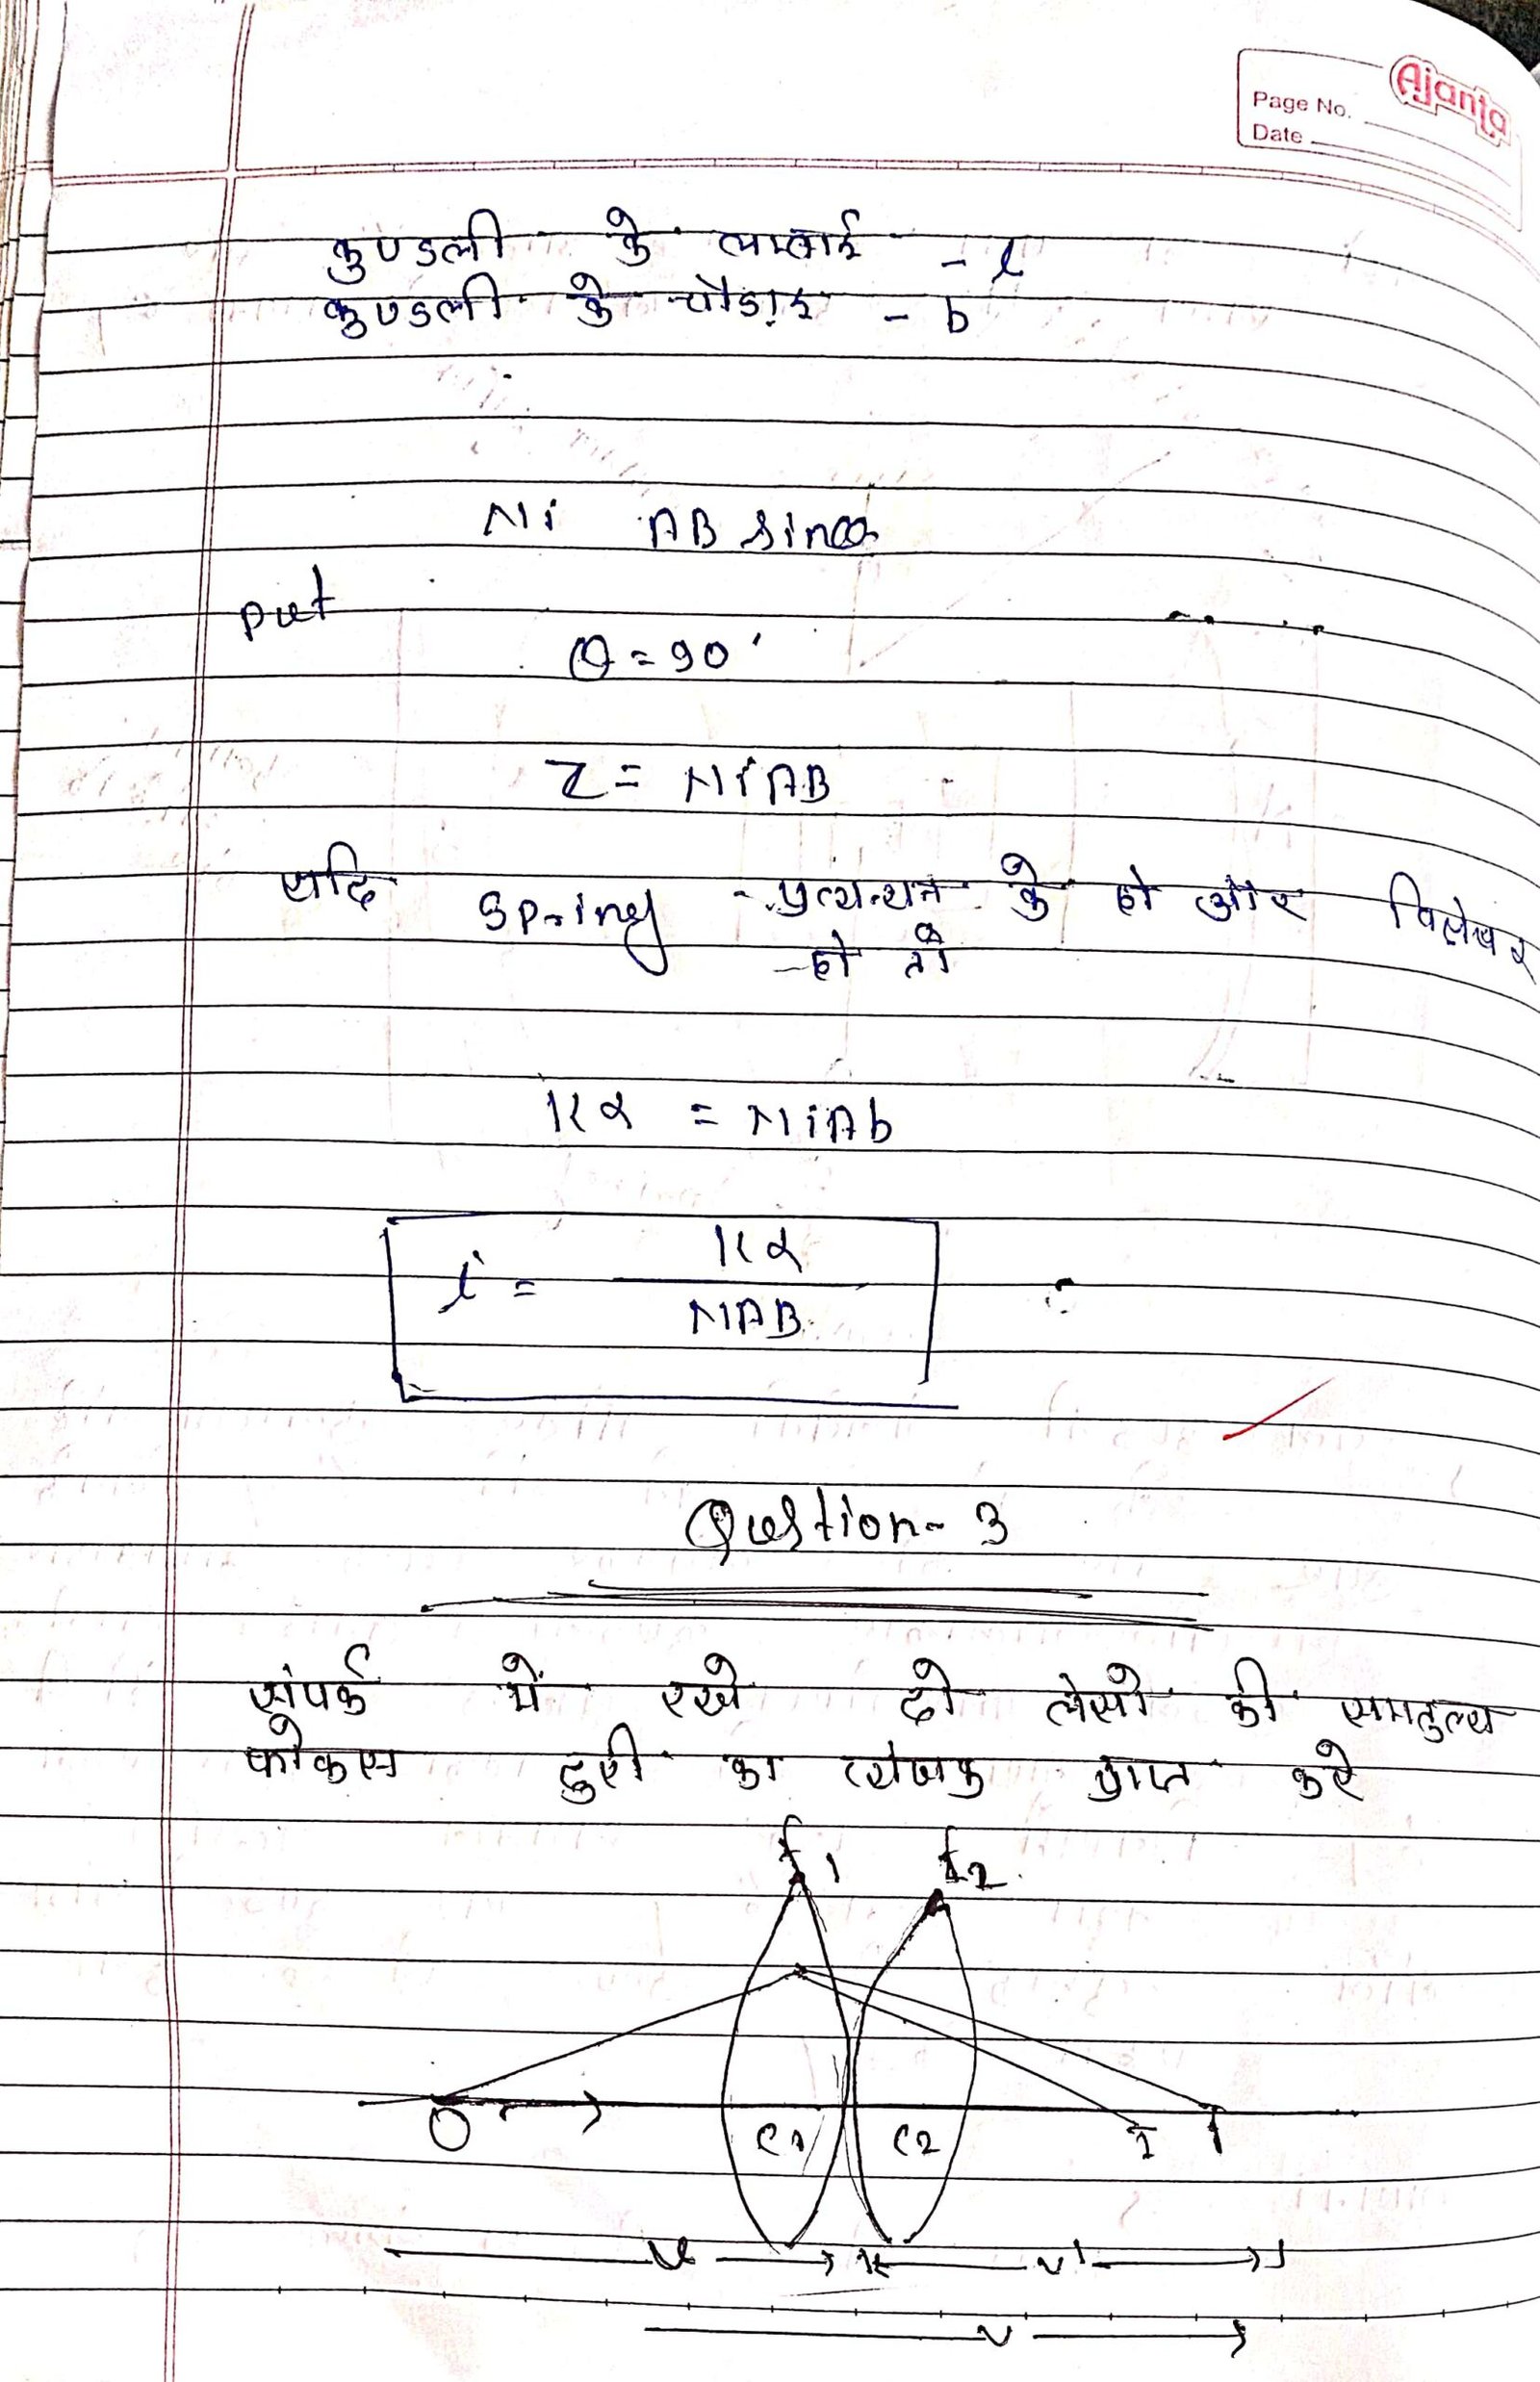 Ajanta
Page No.
Date
कुण्डली के लम्बाई - l
कुण्डली के चौड़ाई - b
Ni AB sinα
put
θ = 90°
τ = NiAB
यदि Spring के हो और
हो तो
Kα = NiAb
i = Kα / NAB
Question - 3
संपर्क में रखे दो लेंसो की समतुल्य
फोकस दुरी का व्यंजक प्राप्त करे
f1 f2
O C1 C2 I I
u v'
v